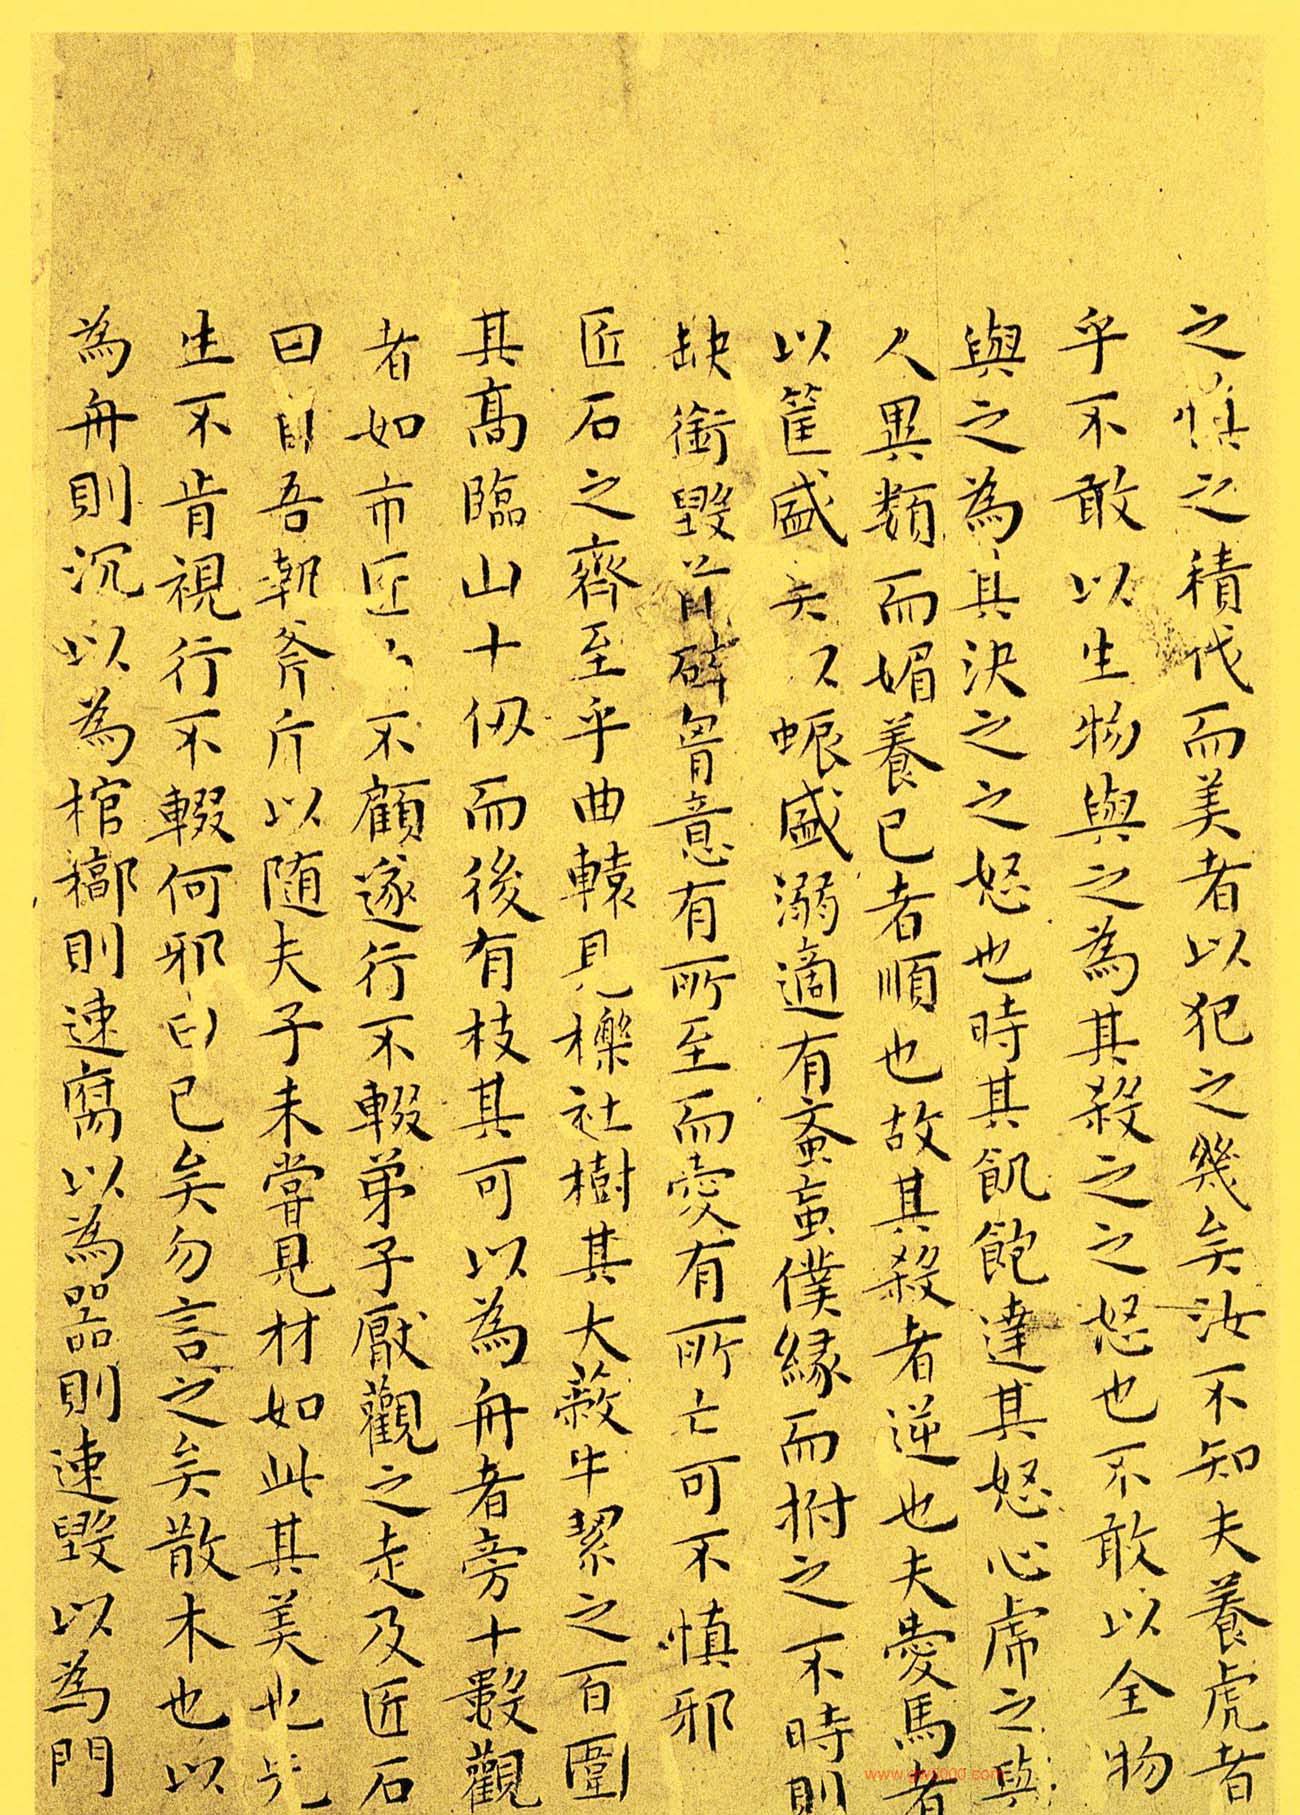 之慎之積伐而美者以犯之幾矣汝不知夫養虎者
乎不敢以生物與之為其殺之之怒也不敢以全物
與之為其決之之怒也時其飢飽達其怒心虎之與
人異類而媚養己者順也故其殺者逆也夫愛馬者
以筐盛矢以蜄盛溺適有蚉䖟僕緣而拊之不時則
缺銜毀首碎胷意有所至而愛有所亡可不慎邪
匠石之齊至乎曲轅見櫟社樹其大蔽牛絜之百圍
其高臨山十仞而後有枝其可以為舟者旁十數觀
者如市匠 不顧遂行不輟弟子厭觀之走及匠石
曰自吾執斧斤以隨夫子未嘗見材如此其美也先
生不肯視行不輟何邪曰已矣勿言之矣散木也以
為舟則沉以為棺槨則速腐以為器則速毀以為門